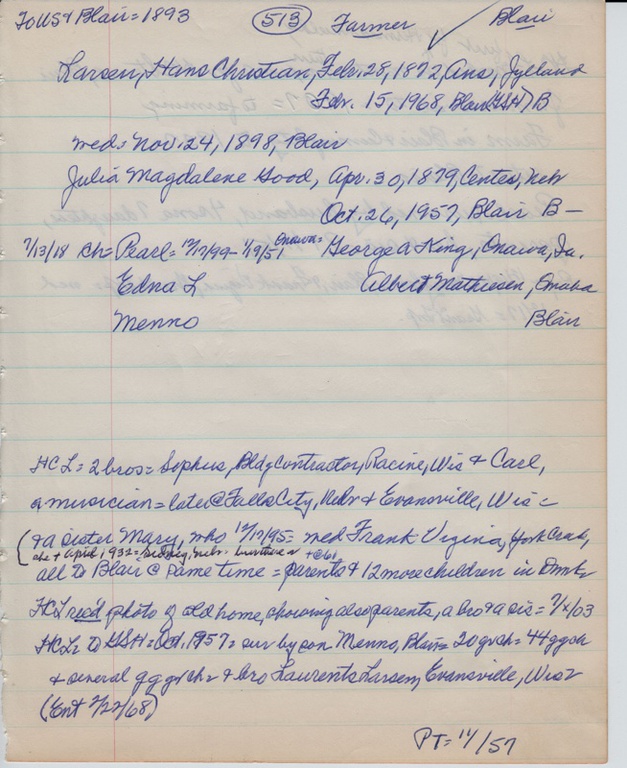 To US & Blair = 1893 513 Farmer ✓ Blair
Larsen, Hans Christian, Febr. 28, 1872, Ans, Jylland
Febr. 15, 1968, Blair (GSH) B
med = Nov. 24, 1898, Blair
Julia Magdalene Good, Apr. 30, 1879, Center, Nebr
Oct. 26, 1957, Blair B —
7/13/18 Ch = Pearl = 12/17/99 - 1/19/51, Onawa = George A King, Onawa, Ia.
Edna L Albert Mathiesen, Omaha
Menno Blair
HCL = 2 bros = Sophus, Bldg Contractor, Racine, Wis & Carl,
a musician = later @ Falls City, Nebr & Evansville, Wis =
(& a sister Mary, who 12/17/95 = med Frank York Crab,
she + April, 1932 = Nebr =
all to Blair @ same time = parents & 12 more children in Dmk =
HCL rec'd photo of old home, showing also parents, a bro & a sis = 7/x/03
HCL = to GSH = Oct. 1957 = sur by son Menno, Blair = 20 grch = 44 ggch
& several gggrch = & bro Laurents Larsen, Evansville, Wis =
(Ent 2/22/68)
PT = 11/57